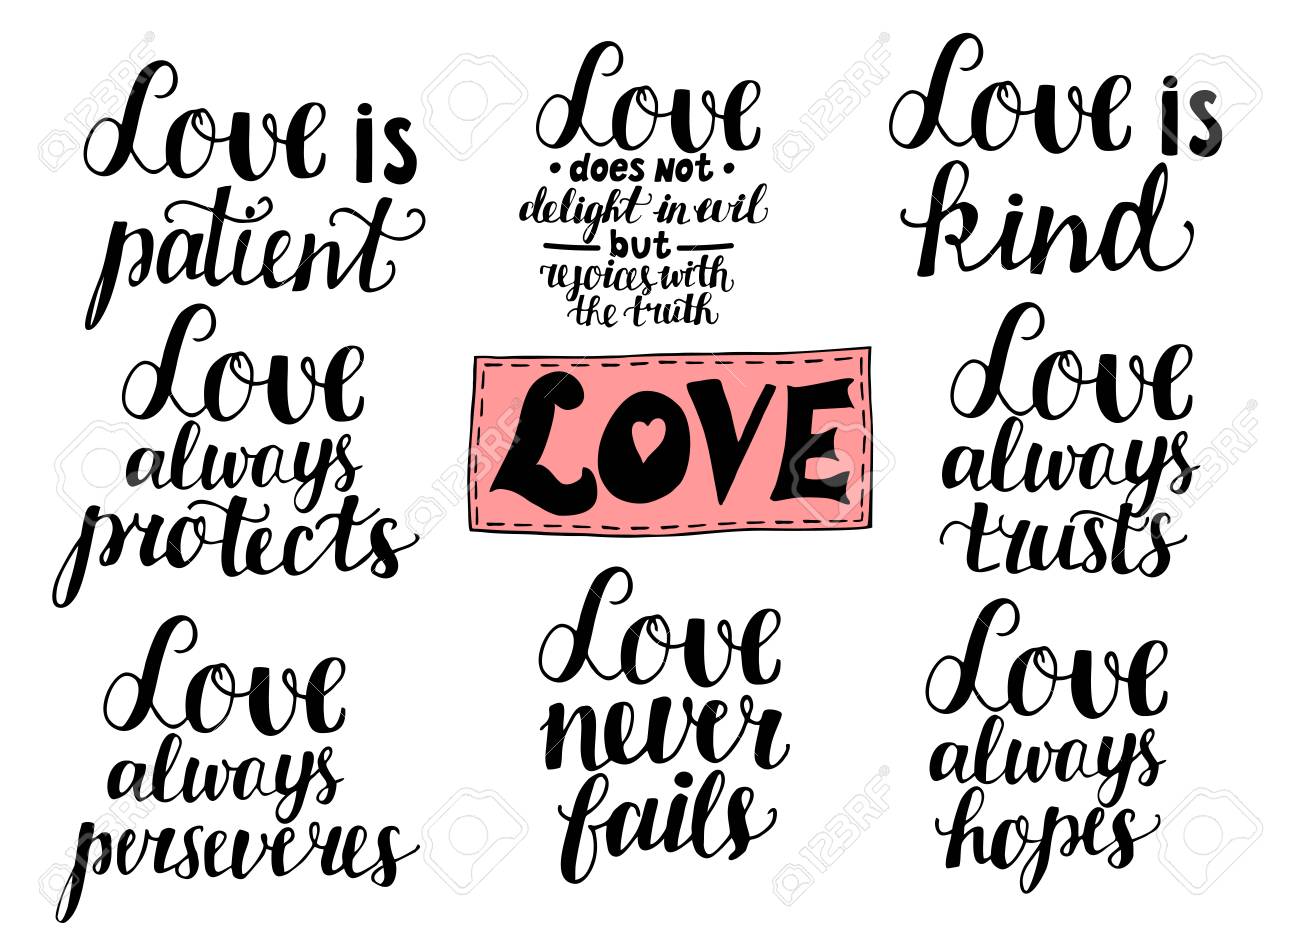 Love is
patient
Love
• does not •
delight in evil
but
rejoices with
the truth
Love is
kind
Love
always
protects
LOVE
Love
always
trusts
Love
always
perseveres
Love
never
fails
Love
always
hopes
123RF